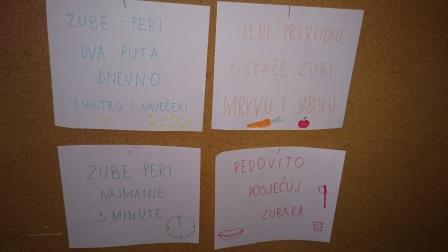 ZUBE PERI
DVA PUTA
DNEVNO
(UJUTRO I NAVEČER)
JEDI PRIRODNE
ČISTAČE ZUBI
MRKVU I JABUKU
ZUBE PERI
NAJMANJE
3 MINUTE
REDOVITO
POSJEĆUJ
ZUBARA